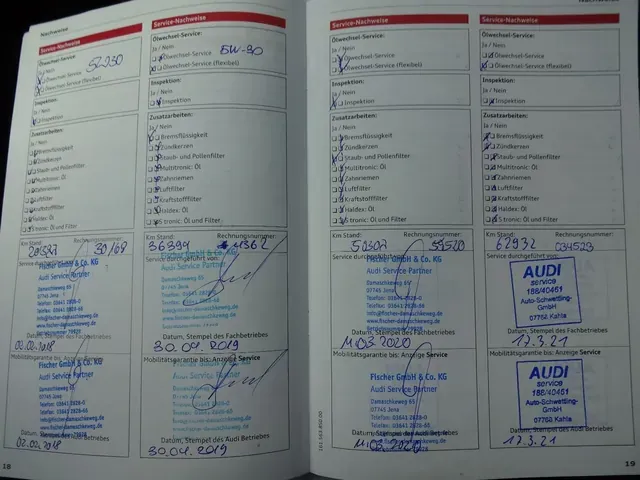 Nachweise
Service-Nachweise
Ölwechsel-Service:
Ja / Nein
Ölwechsel-Service
Ölwechsel-Service (flexibel)
Inspektion:
Ja / Nein
Inspektion
Zusatzarbeiten:
Ja / Nein
Bremsflüssigkeit
Zündkerzen
Staub- und Pollenfilter
Multitronic: Öl
Zahnriemen
Luftfilter
Kraftstofffilter
Haldex: Öl
S tronic: Öl und Filter
Km Stand: Rechnungsnummer:
30/68
Service durchgeführt von:
Fischer GmbH & Co. KG
Audi Service Partner
Damaschkeweg 65
07745 Jena
Telefon: 03641 2828-0
Datum, Stempel des Fachbetriebes
02.02.2018
Mobilitätsgarantie bis: Anzeige Service
Fischer GmbH & Co. KG
Audi Service Partner
Damaschkeweg 65
07745 Jena
Datum, Stempel des Audi Betriebes
02.02.2018
18
Service-Nachweise
Ölwechsel-Service:
Ja / Nein
Ölwechsel-Service 5W-30
Ölwechsel-Service (flexibel)
Inspektion:
Ja / Nein
Inspektion
Zusatzarbeiten:
Ja / Nein
Bremsflüssigkeit
Zündkerzen
Staub- und Pollenfilter
Multitronic: Öl
Zahnriemen
Luftfilter
Kraftstofffilter
Haldex: Öl
S tronic: Öl und Filter
Km Stand: Rechnungsnummer:
36399
Service durchgeführt von:
Fischer GmbH & Co. KG
Audi Service Partner
Damaschkeweg 65
07745 Jena
Datum, Stempel des Fachbetriebes
30.04.2019
Mobilitätsgarantie bis: Anzeige Service
Fischer GmbH & Co. KG
Audi Service Partner
Damaschkeweg 65
07745 Jena
Datum, Stempel des Audi Betriebes
30.04.2019
Service-Nachweise
Ölwechsel-Service:
Ja / Nein
Ölwechsel-Service
Ölwechsel-Service (flexibel)
Inspektion:
Ja / Nein
Inspektion
Zusatzarbeiten:
Ja / Nein
Bremsflüssigkeit
Zündkerzen
Staub- und Pollenfilter
Multitronic: Öl
Zahnriemen
Luftfilter
Kraftstofffilter
Haldex: Öl
S tronic: Öl und Filter
Km Stand: Rechnungsnummer:
Service durchgeführt von:
Fischer GmbH & Co. KG
Audi Service Partner
Damaschkeweg 65
07745 Jena
Telefon: 03641 2828-0
Datum, Stempel des Fachbetriebes
11.03.2020
Mobilitätsgarantie bis: Anzeige Service
Fischer GmbH & Co. KG
Audi Service Partner
Damaschkeweg 65
07745 Jena
Datum, Stempel des Audi Betriebes
11.03.2020
Nachweise
Service-Nachweise
Ölwechsel-Service:
Ja / Nein
Ölwechsel-Service
Ölwechsel-Service (flexibel)
Inspektion:
Ja / Nein
Inspektion
Zusatzarbeiten:
Ja / Nein
Bremsflüssigkeit
Zündkerzen
Staub- und Pollenfilter
Multitronic: Öl
Zahnriemen
Luftfilter
Kraftstofffilter
Haldex: Öl
S tronic: Öl und Filter
Km Stand: Rechnungsnummer:
62932 034523
Service durchgeführt von:
AUDI
service
188/40461
Auto-Schwettling-
GmbH
07768 Kahla
Datum, Stempel des Fachbetriebes
17.3.21
Mobilitätsgarantie bis: Anzeige Service
AUDI
service
188/40461
Auto-Schwettling-
GmbH
07768 Kahla
Datum, Stempel des Audi Betriebes
17.3.21
19